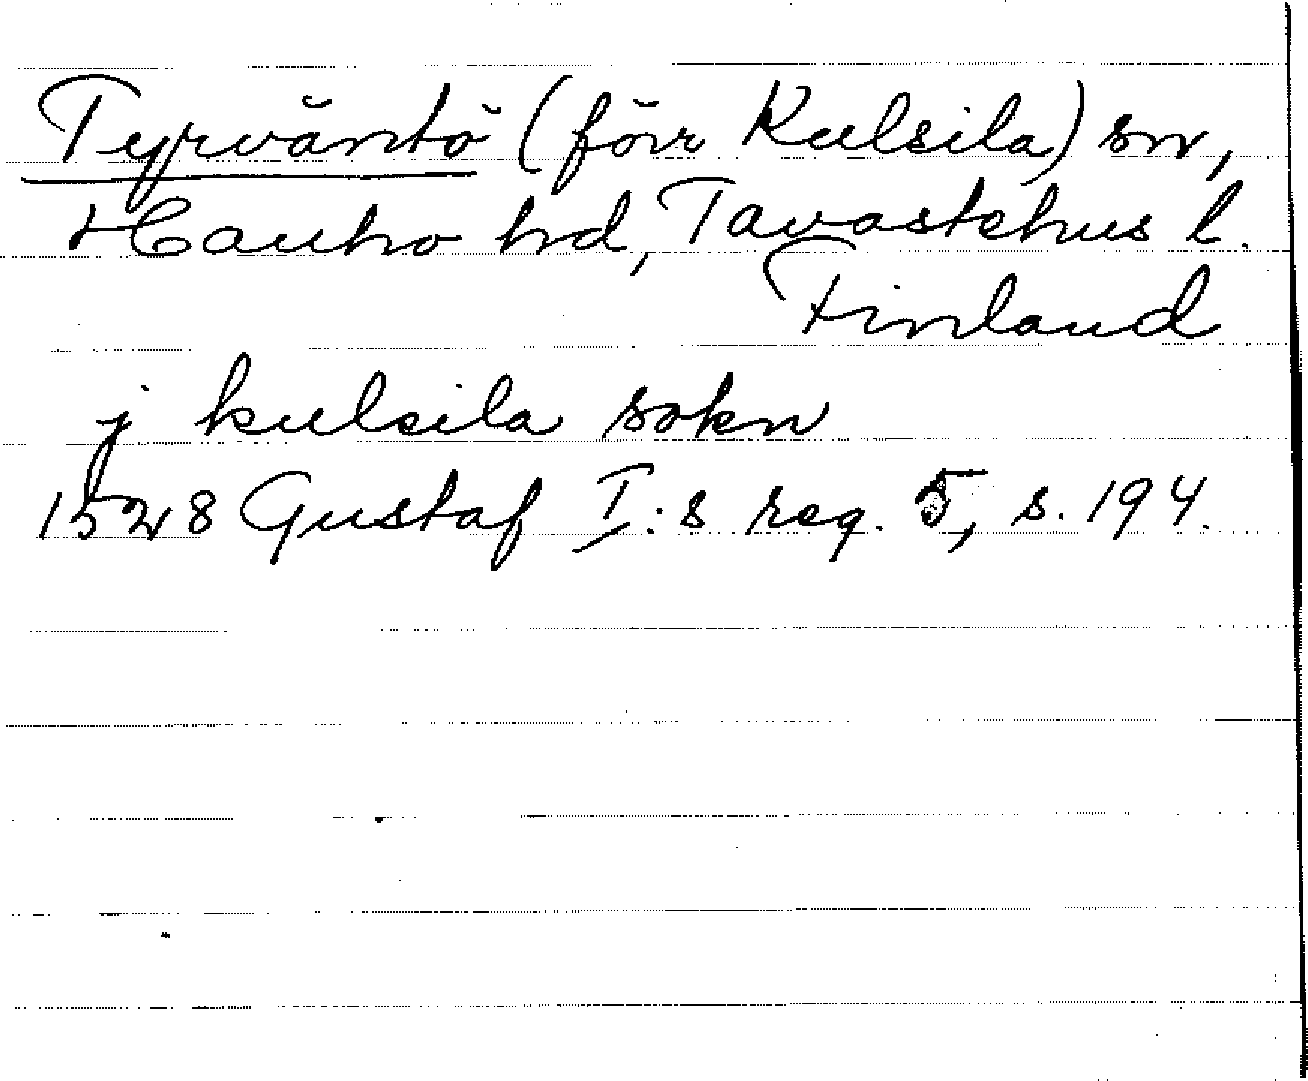 Tyrväntö (förr Kulsila) sn,
Hauho hd, Tavastehus l.
Finland
j kulsila sokn
1528 Gustaf I:s reg. 5, s. 194.